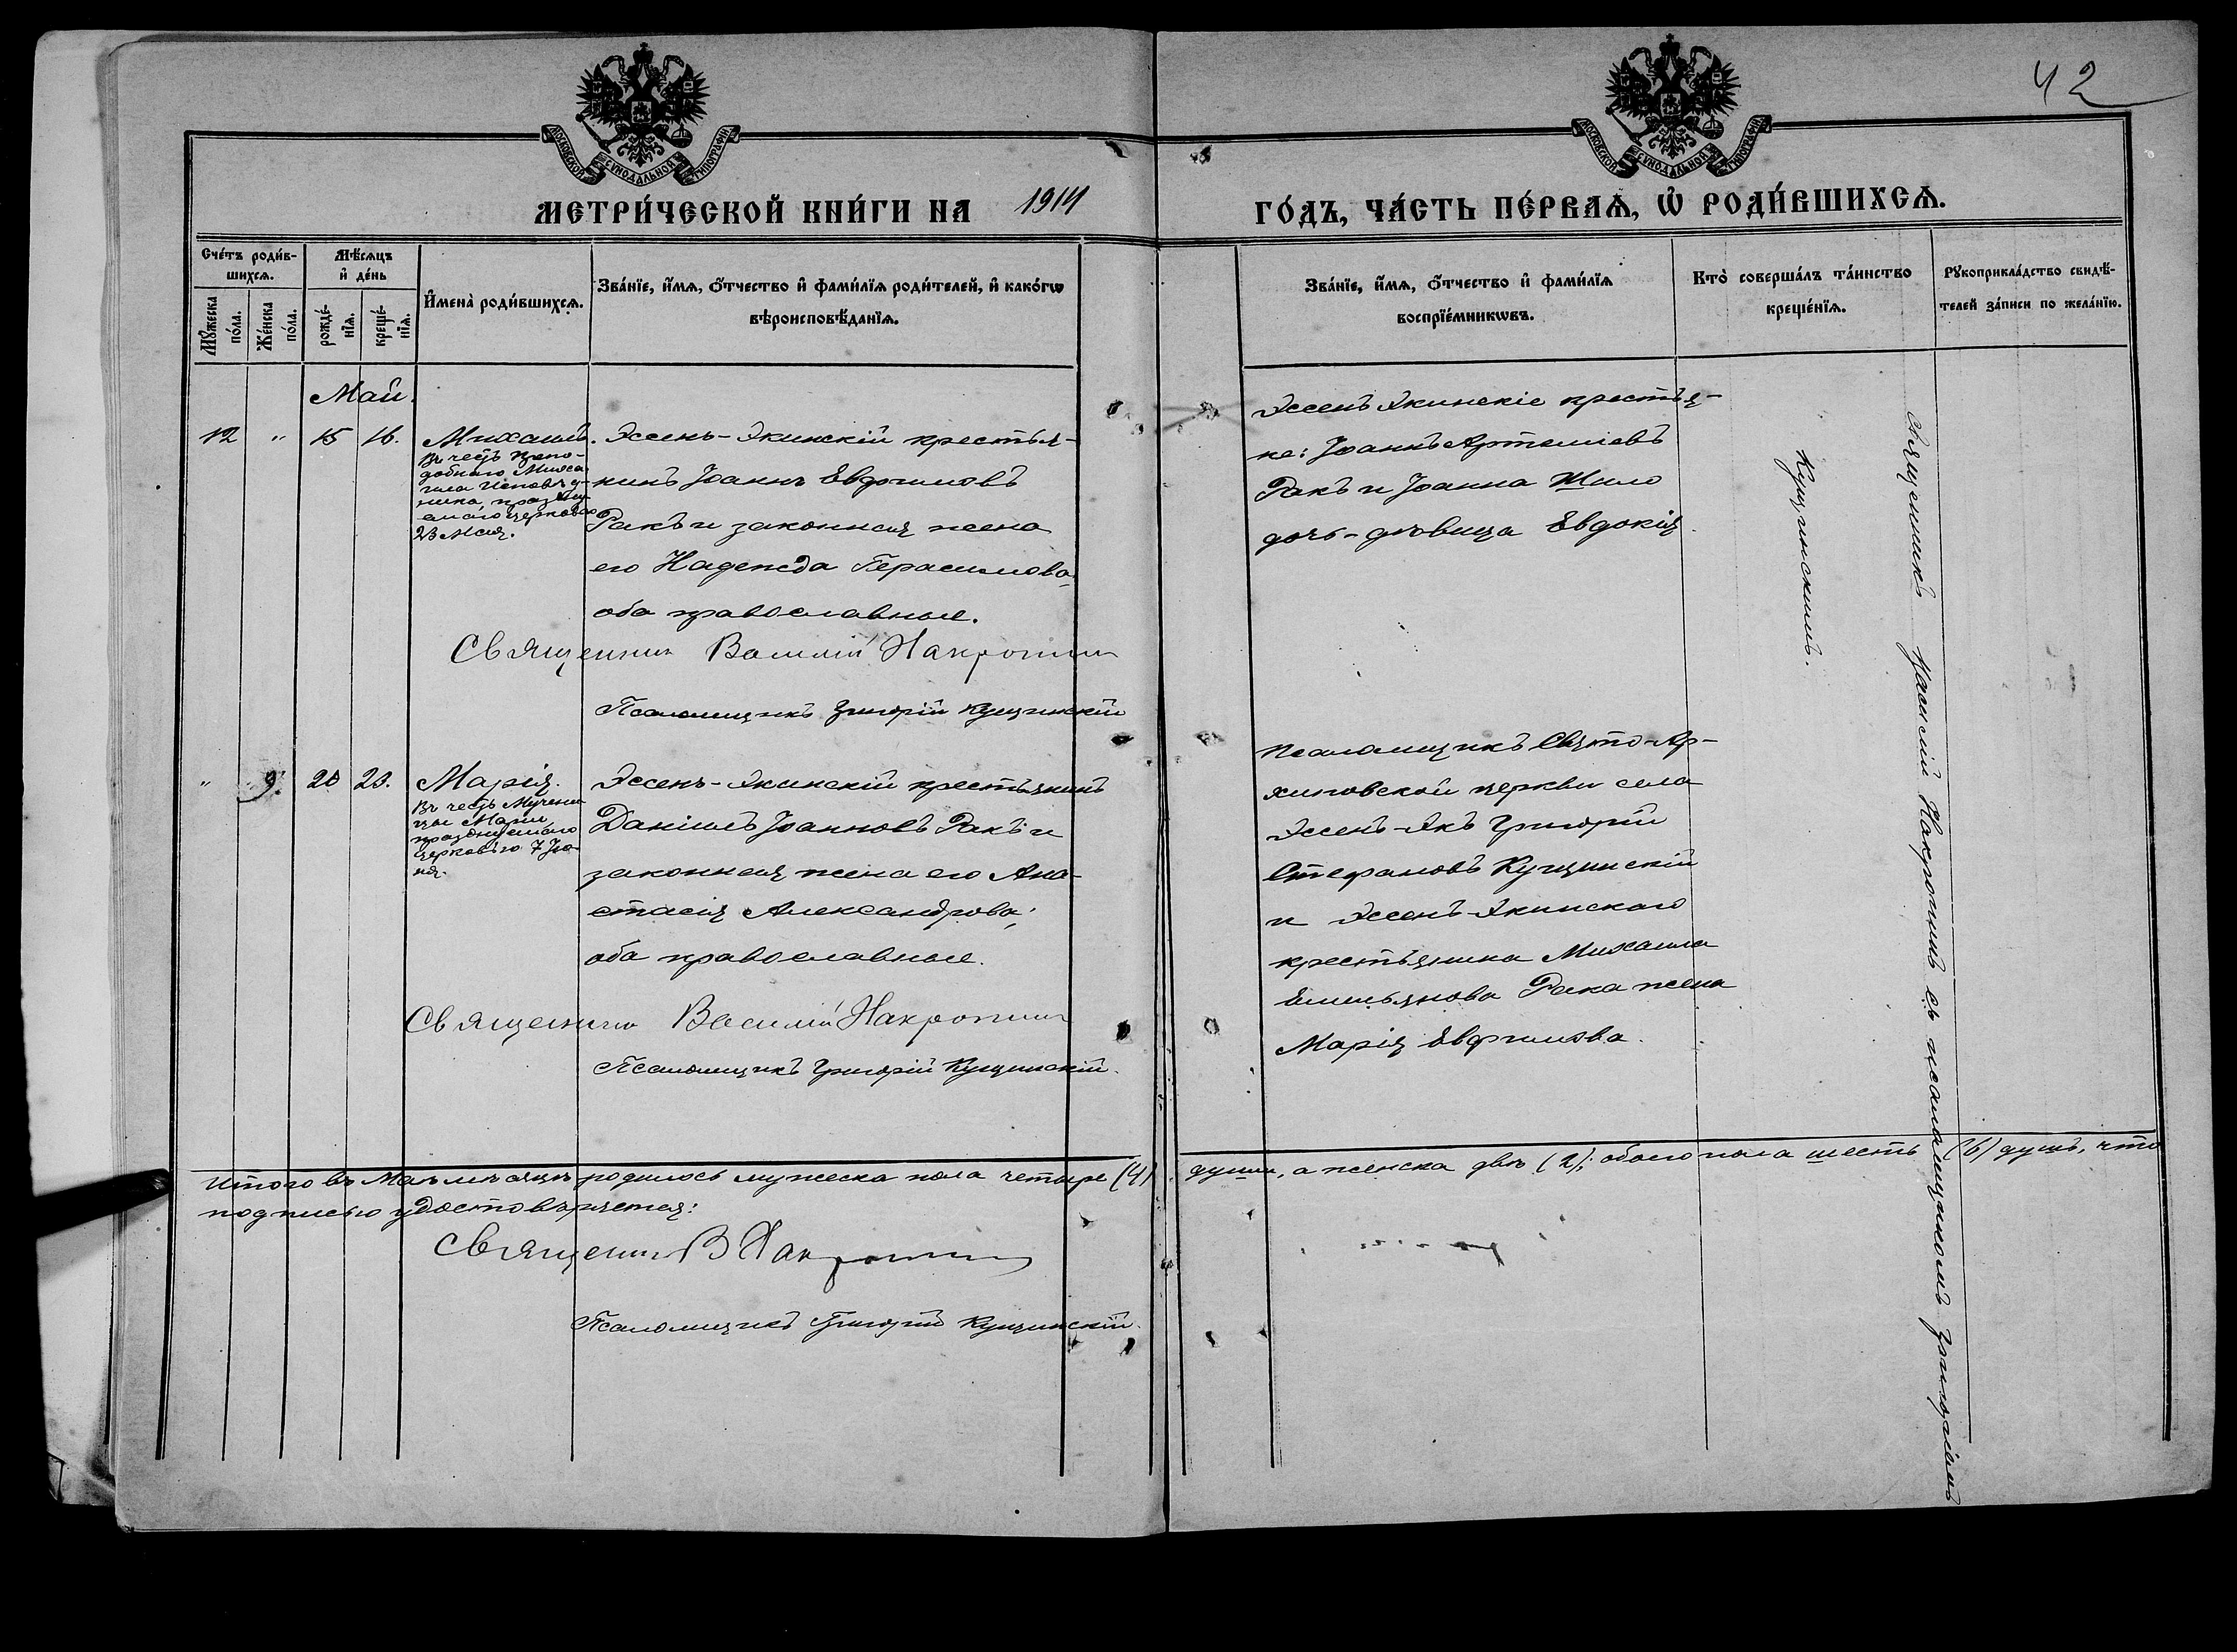 42
МОСКОВСКОЙ СУНОДАЛЬНОЙ ТИПОГРАФИИ
МОСКОВСКОЙ СУНОДАЛЬНОЙ ТИПОГРАФИИ
МЕТРИ́ЧЕСКОЙ КНИ́ГИ НА 1914
ГО́ДЪ, ЧА́СТЬ ПЕ́РВАѦ, Ѡ҆ РОДИ́ВШИХСѦ.
Сче́тъ роди́в-
шихсѧ.
Мꙋжеска по́ла.
Же́нска по́ла.
Мѣ́сѧцъ
и҆ де́нь
рожде́-
нїѧ.
креще́-
нїѧ.
И҆мена̀ роди́вшихсѧ.
Зва́нїе, и҆́мѧ, ѻ҆́тчество и҆ фами́лїѧ роди́телей, и҆ како́гѡ
вѣроисповѣ́данїѧ.
Зва́нїе, и҆́мѧ, ѻ҆́тчество и҆ фами́лїѧ
воспрїе́мникѡвъ.
Кто̀ соверша́лъ та́инство
креще́нїѧ.
Рꙋкоприкла́дство свидѣ́-
телей за́писи по жела́нїю.
Май.
12 " 15 16.
Михаилъ.
Въ честь Препо-
добнаго Миха-
ила Исповѣд-
ника, праздну-
емаго церковью
23 Мая.
Эссенъ-Экинскій крестья-
нинъ Іоаннъ Евфимовъ
Ракъ и законная жена
его Надежда Герасимова,
оба православные.
Священник Василій Накропин
Псаломщикъ Григорій Кущинскій
Эссенъ Экинскіе крестья-
не: Іоаннъ Артеміевъ
Ракъ и Іоанна Шило
дочь-дѣвица Евдокія.
" 9. 20 23.
Марія.
Въ честь Мучени-
цы Маріи,
празднуемаго
церковью 7 Iю-
ня.
Эссенъ-Экинскій крестьянинъ
Даніилъ Іоанновъ Ракъ и
законная жена его Ана-
стасія Александрова,
оба православные.
Священник Василій Накропин
Псаломщикъ Григорій Кущинскій.
Псаломщикъ Свято-Ар-
хиповской церкви села
Эссенъ-Экъ Григорій
Стефановъ Кущинскій
и Эссенъ-Экинскаго
крестьянина Михаила
Емельянова Рака жена
Марія Евфимова.
Священникъ Василій Накропинъ съ псаломщикомъ Григоріемъ
Кущинскимъ.
Итого въ Маѣ мѣсяцѣ родилось мужеска пола четыре (4) души, а женска двѣ (2); обоего пола шесть (6) душъ, что
подписью удостовѣряется:
Священник В Накропин
Псаломщикъ Григорій Кущинскій.